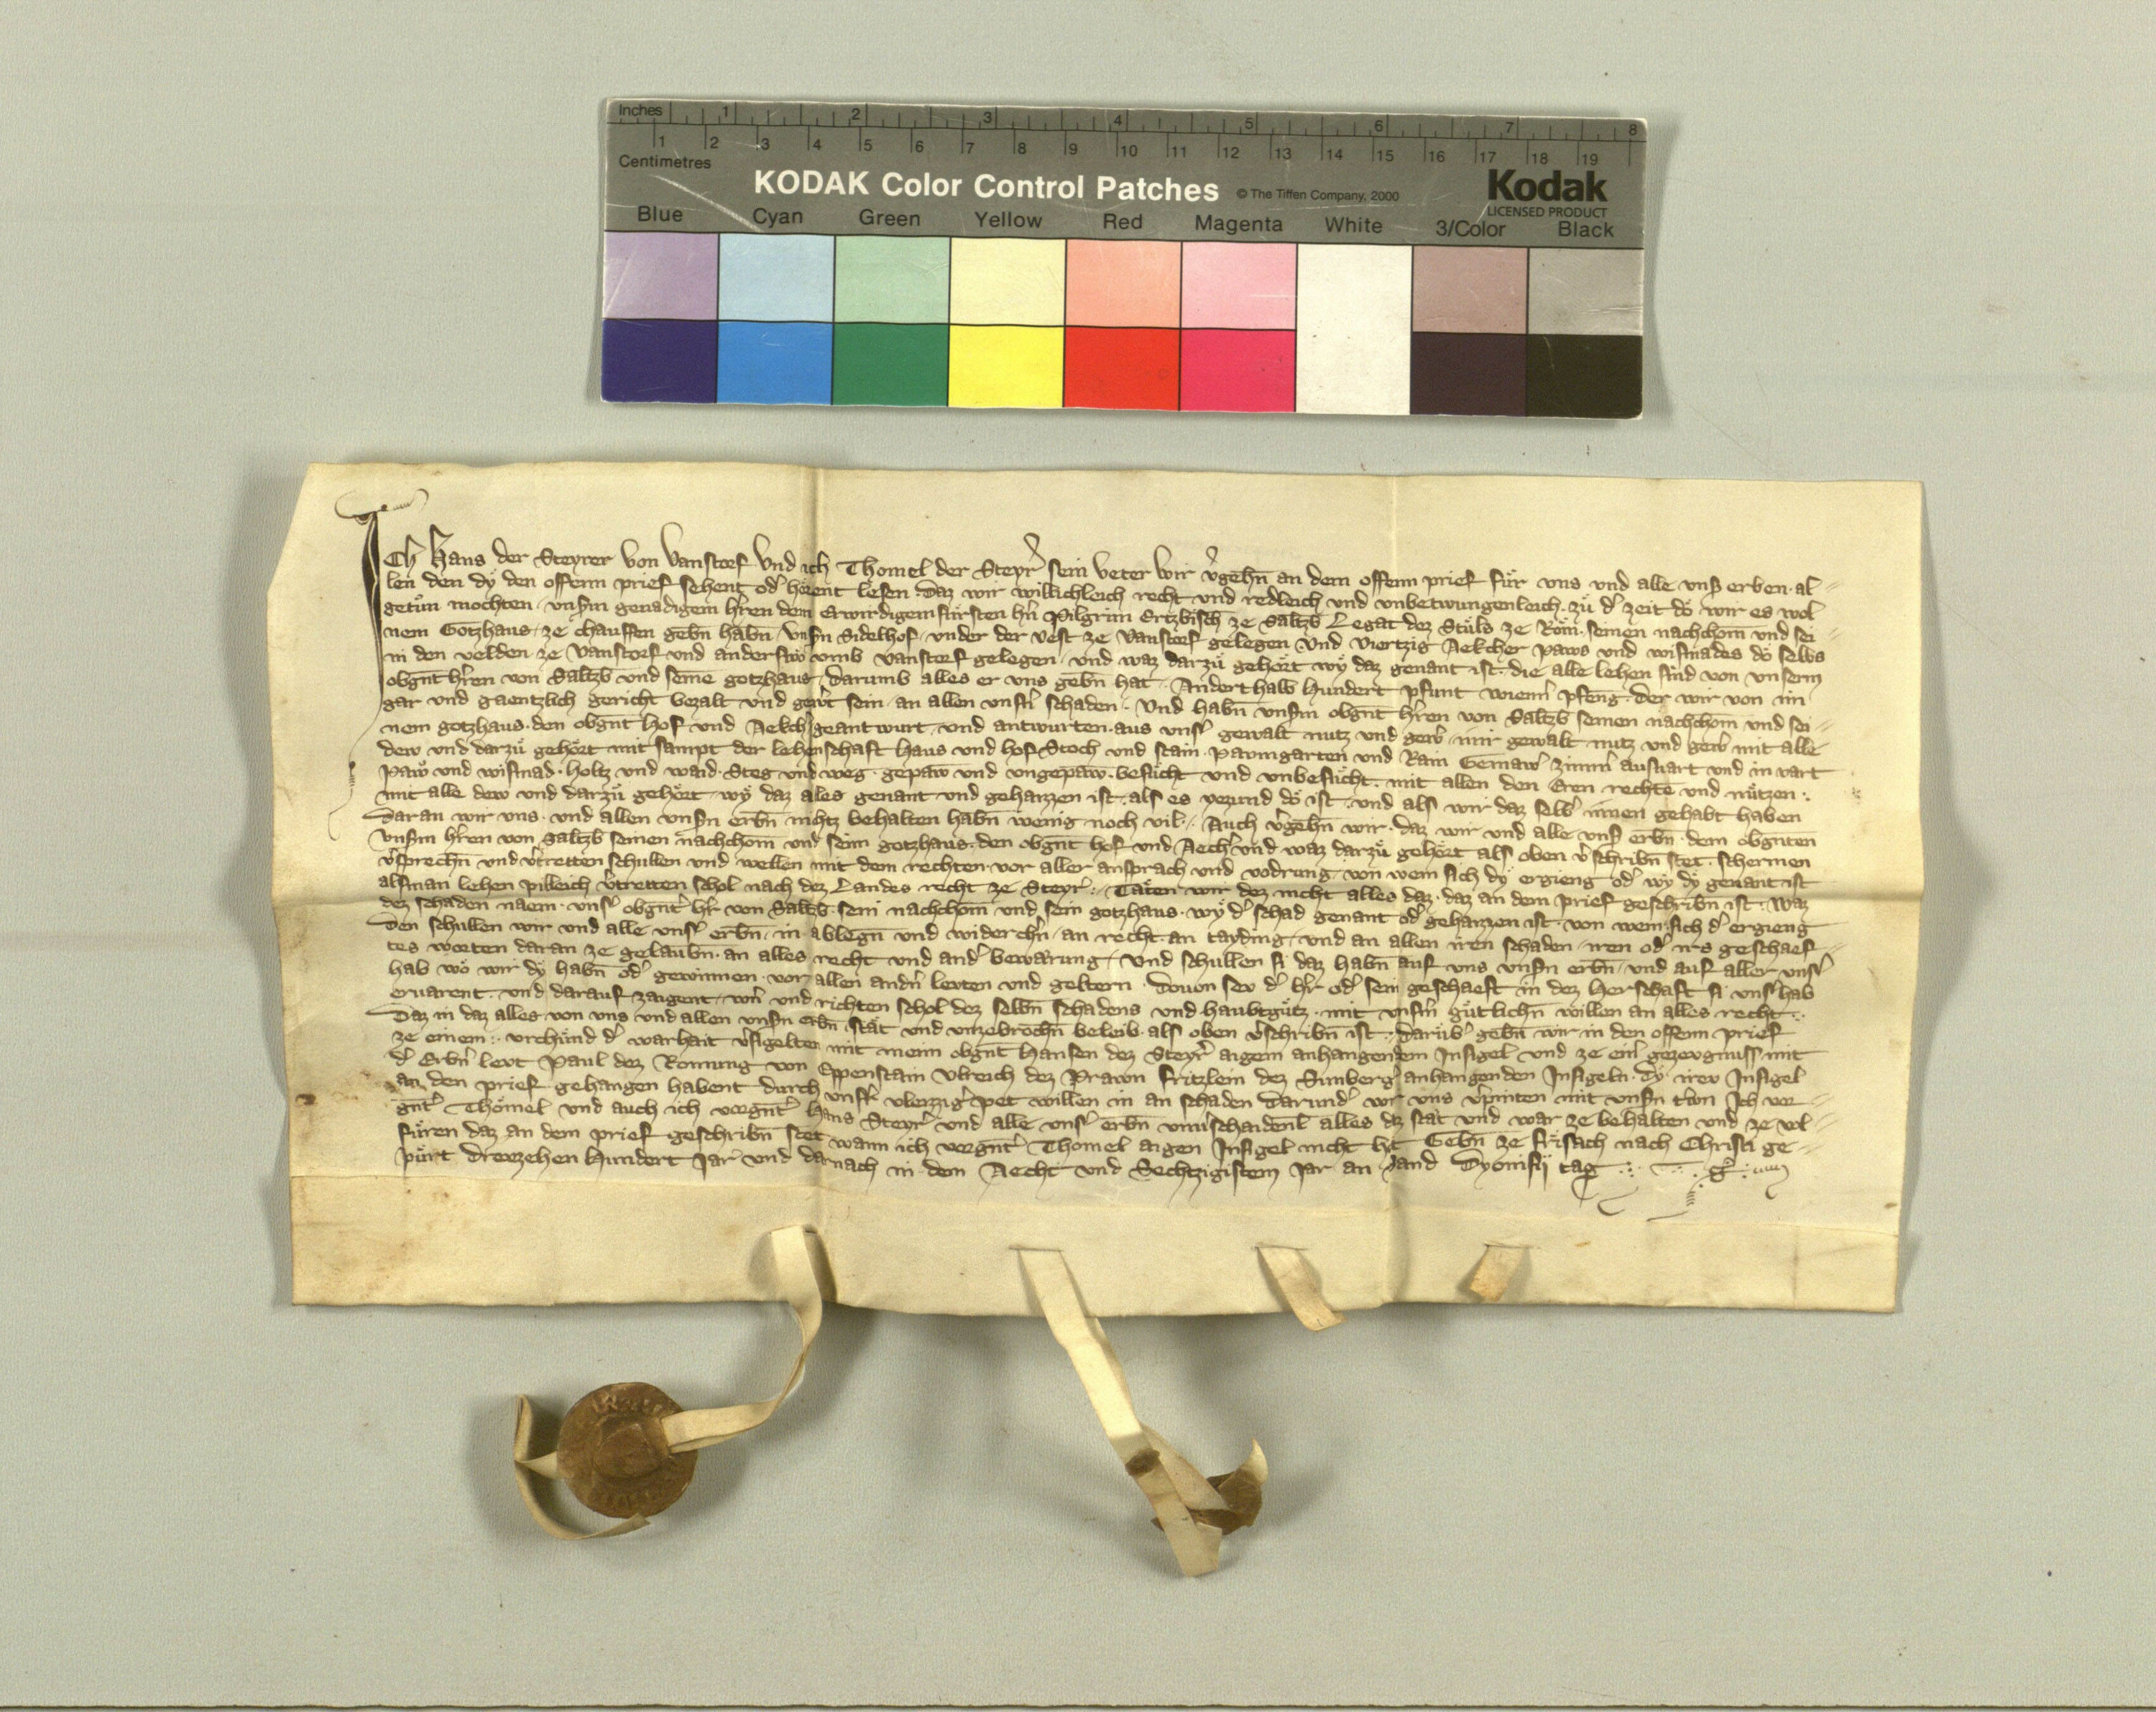 Inches 1 2 3 4 5 6 7 8
1 2 3 4 5 6 7 8 9 10 11 12 13 14 15 16 17 18 19
Centimetres
KODAK Color Control Patches © The Tiffen Company, 2000 Kodak
LICENSED PRODUCT
Blue Cyan Green Yellow Red Magenta White 3/Color Black
Ich Hans der Steyrer von Vanstorf Vnd ich Thomel der Steyr̾ sein veter wir v̾gehn̄ an dem offenn prief fu̇r vns vnd alle vns̾ erben al⸗
len den dy̆ den offenn prief sehent od̾ hörent lesen daz wir willichleich recht vnd redleich vnd vnbetwungenleich zu̇ d̾ zeit dö wir es wol
getu̇n mochten vnsm̾ genadigem hr̄en dem Erwirdigem fu̇rsten hn̄ Pilgrim Ertzbisch̄ ze Saltzb̄ Legat dez Stu̇ls ze Röm seinen nachchom̄ vnd sei⸗
nem Gotzhaus ze chauffen gebn̄ habn̄ vnsn̾ Sidelhof vnder der vest ze Vanstorf gelegen Vnd viertzig Aekcher paws vnd wismades dö selbs
in den velden ze Vanstorf vnd anderswö vmb Vanstorf gelegen vnd waz darzu̇ gehört wy̆ daz genant ist die alle lehen sind von vnserm
obgn̄t hr̄en von Saltzb̄ vnd seine gotzhaus darumb alles er vns gebn̄ hat Anderthalb Hundert pfunt wienn̾ pfenḡ der wir von im
gar vnd gaentzlich gericht bezalt vnd gew̾t sein an allen vnsn̾ schaden Vnd habn̄ vnsm̾ obgn̄t hr̄en von Saltzb̄ seinen nachchom̄ vnd sei⸗
nem gotzhaus den obgn̄t hof vnd Aekch̾ geantwurt vnd antwurten aus vns̾ gewalt nutz vnd gew̾ inir gewalt nutz vnd gew̾ mit alle
dew vnd darzu̇ gehört mit sampt der lehenschaft haus vnd hof Stoch vnd stain Pawmgarten vnd Rain Gemaw̾ zimm̾ ausuart vnd in vart
paw̆ vnd wismad holtz vnd waid Steg vnd weg gepaw vnd vngepaw besu̇cht vnd vnbesu̇cht mit allen den Eren rechte vnd nützen
mit alle dew vnd darzu̇ gehört wy̆ daz ales genant vnd gehaizzen ist als es yezund dö ist vnd als wir daz selb̾ innen gehabt haben
Daran wir vns vnd allen vnsn̾ erbn̄ nichtz behalten habn̄ wenig noch vil Auch v̾gehn̄ wir daz wir vnd alle vns̾ erbn̄ dem obgn̄ten
vnsm̾ hr̄en von Saltzb̄ seinen nachchom̄ vnd seim gotzhaus den obgn̄t hof vnd Aech̾ vnd waz darzu̇ gehört als oben v̾schribn̄ stet schermen
v̾sprechn̄ vnd v̾tretten schullen vnd wellen mit dem rechten vor aller ansprach vnd vodrung von wem sich dy̆ ergieng od̾ wy̆ dy̆ genant ist
alsman lehen pilleich v̾tretten schol nach dez Landes recht ze Steyr̾ Täten wir dez nicht alles daz daz an dem prief geschribn̄ ist waz
dez schaden naem vns̾ obgn̄t̾ hr̄ von Saltzb̄ sein nachchom̄ vnd sein gotzhaus wy̆ d̾ schad genant od̾ gehaizzen ist von wem sich d̾ ergieng
Den schullen wir vnd alle vns̾ erbn̄ in ablegn̄ vnd widerch̾n an recht an tayding vnd an allen iren schaden iren od̾ irs geschaef⸗
tes worten daran ze gelaubn̄ an alles recht vnd and̾ bewärung Vnd schullen si daz habn̄ auf vns vnsn̾ erbn̄ vnd auf aller vns̾
hab wö wir dy̆ habn̄ od̾ gewinnen vor allen andn̾ lewten vnd geltern Douon sev d̾ hr̄ od̾ sein geschaeft in dez herschaft si vns̾ hab
eruarent vnd darauf zaigent wn̾ vnd richten schol dez selbn̄ schadens vnd haubtgu̇tz mit vnsm̾ gu̇tlichn̄ willen an alles recht
Daz in daz alles von vns vnd allen vnsn̾ erbn̄ stät vnd vnzebrochn̄ beleib als oben v̾schribn̄ ist darüb̾ gebn̄ wir in den offenn prief
ze einem vrchünd d̾ warhait v̾sigelten mit meim obgn̄t Hansen dez Steyr̾ aigem anhangendem Insigel vnd ze ein̾ gezewgnuss mit
d̾ Erbn̾ lewt Paul dez Ronung von Eppenstain Vlreich dez Prawn Fritzlein dez Sunberg̾ anhangenden Insigeln dy̆ irev Insigel
an den prief gehangen habent durch vns̾ vleizzig̾ pet willen in an schaden darund̾ wir vns v̾pinten mit vnsn̾ tr̾wn Ich vor
gn̄t̾ Thömel vnd auch ich vorgn̄t̾ Hans Steyr̾ vnd alle vns̾ erbn̄ vnuschaidenl̄ alles daz stät vnd war ze behalten vnd ze vol⸗
füren daz an dem prief geschribn̄ stet wann ich vorgn̄t̾ Thömel aigen Insigel nicht hit Gebn̄ ze Frisach nach Christi ge⸗
pu̇rt drewzehen Hundert Jar vnd darnach in dem Aecht vnd Sechtzigistem Jar an sand Dyonisii tag